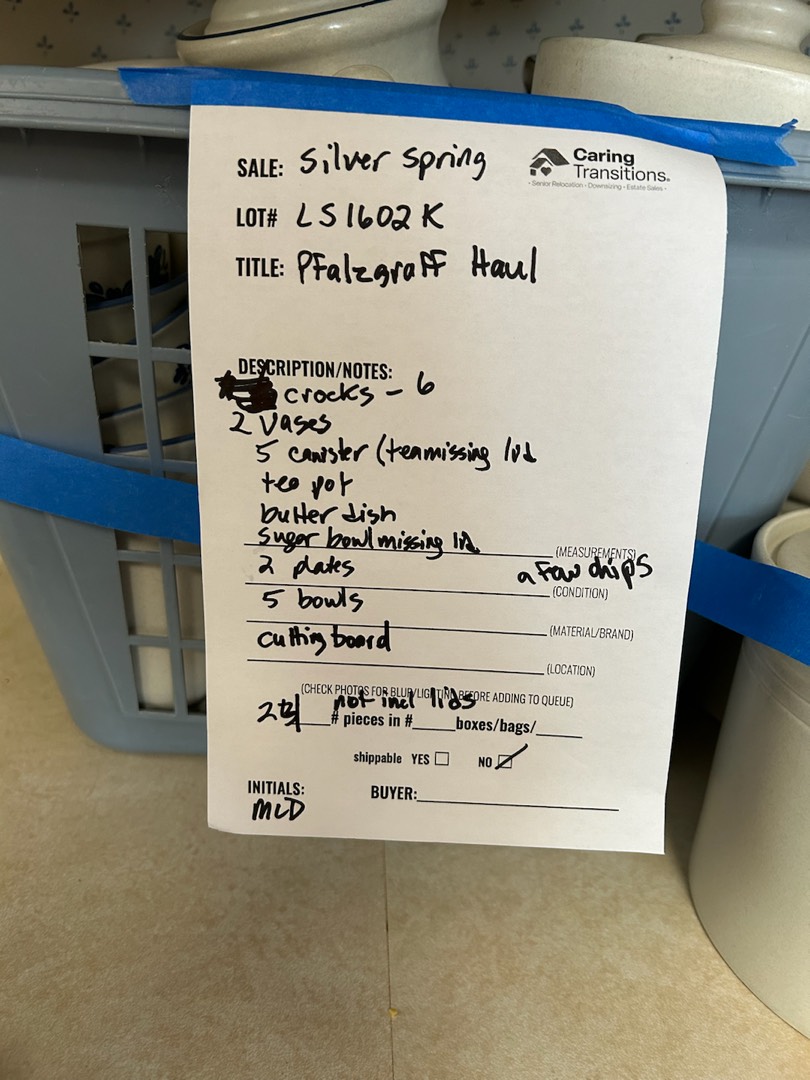 SALE: Silver Spring
Caring
Transitions.
• Senior Relocation • Downsizing • Estate Sales •
LOT# LS1602K
TITLE: Pfalzgraff Haul
DESCRIPTION/NOTES:
crocks - 6
2 Vases
5 canister (tea missing lid
tea pot
butter dish
sugar bowl missing lid
(MEASUREMENTS)
2 plates a few chips
(CONDITION)
5 bowls
(MATERIAL/BRAND)
cutting board
(LOCATION)
(CHECK PHOTOS FOR BLUR/LIGHTING BEFORE ADDING TO QUEUE)
not incl lids
# pieces in # boxes/bags/
shippable YES NO
INITIALS: BUYER:
MLD